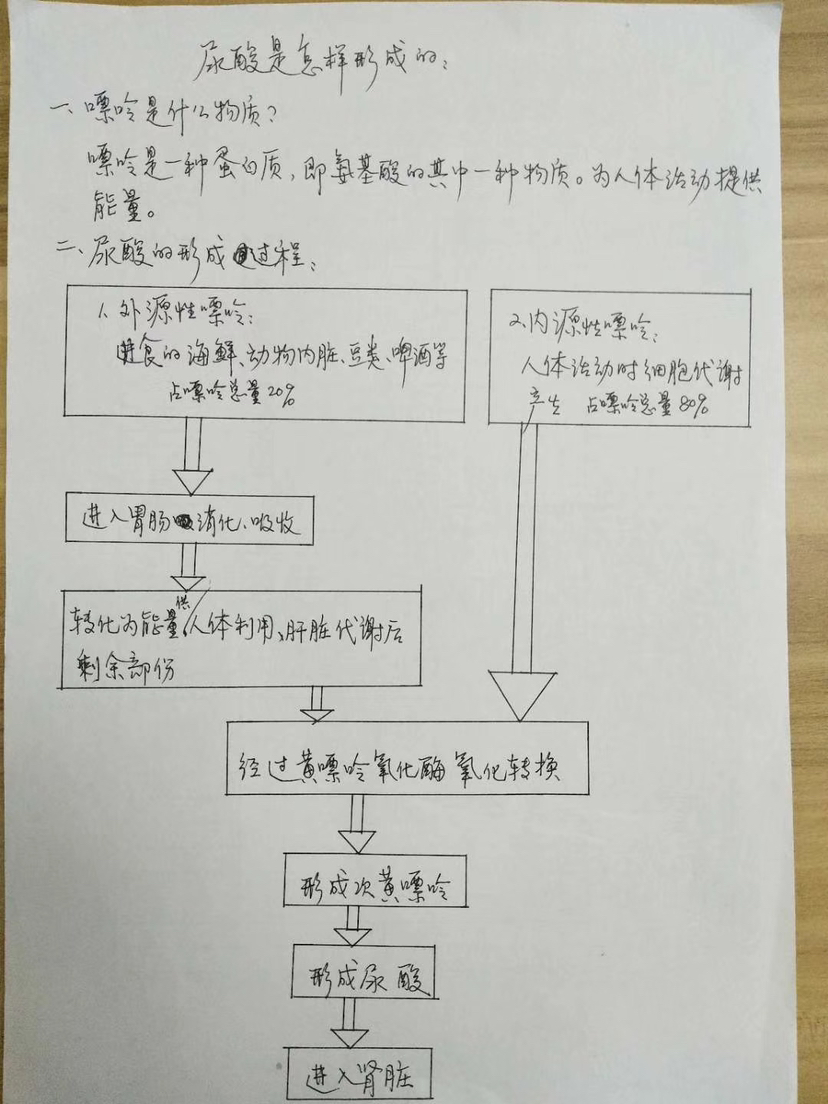 尿酸是怎样形成的：
一、嘌呤是什么物质？
嘌呤是一种蛋白质，即氨基酸的其中一种物质。为人体活动提供
能量。
二、尿酸的形成过程：
1、外源性嘌呤：
进食的海鲜、动物内脏、豆类、啤酒等
占嘌呤总量20%
2、内源性嘌呤：
人体活动时细胞代谢
产生 占嘌呤总量80%
进入胃肠消化、吸收
转化为能量供人体利用、肝脏代谢后
剩余部份
经过黄嘌呤氧化酶氧化转换
形成次黄嘌呤
形成尿酸
进入肾脏